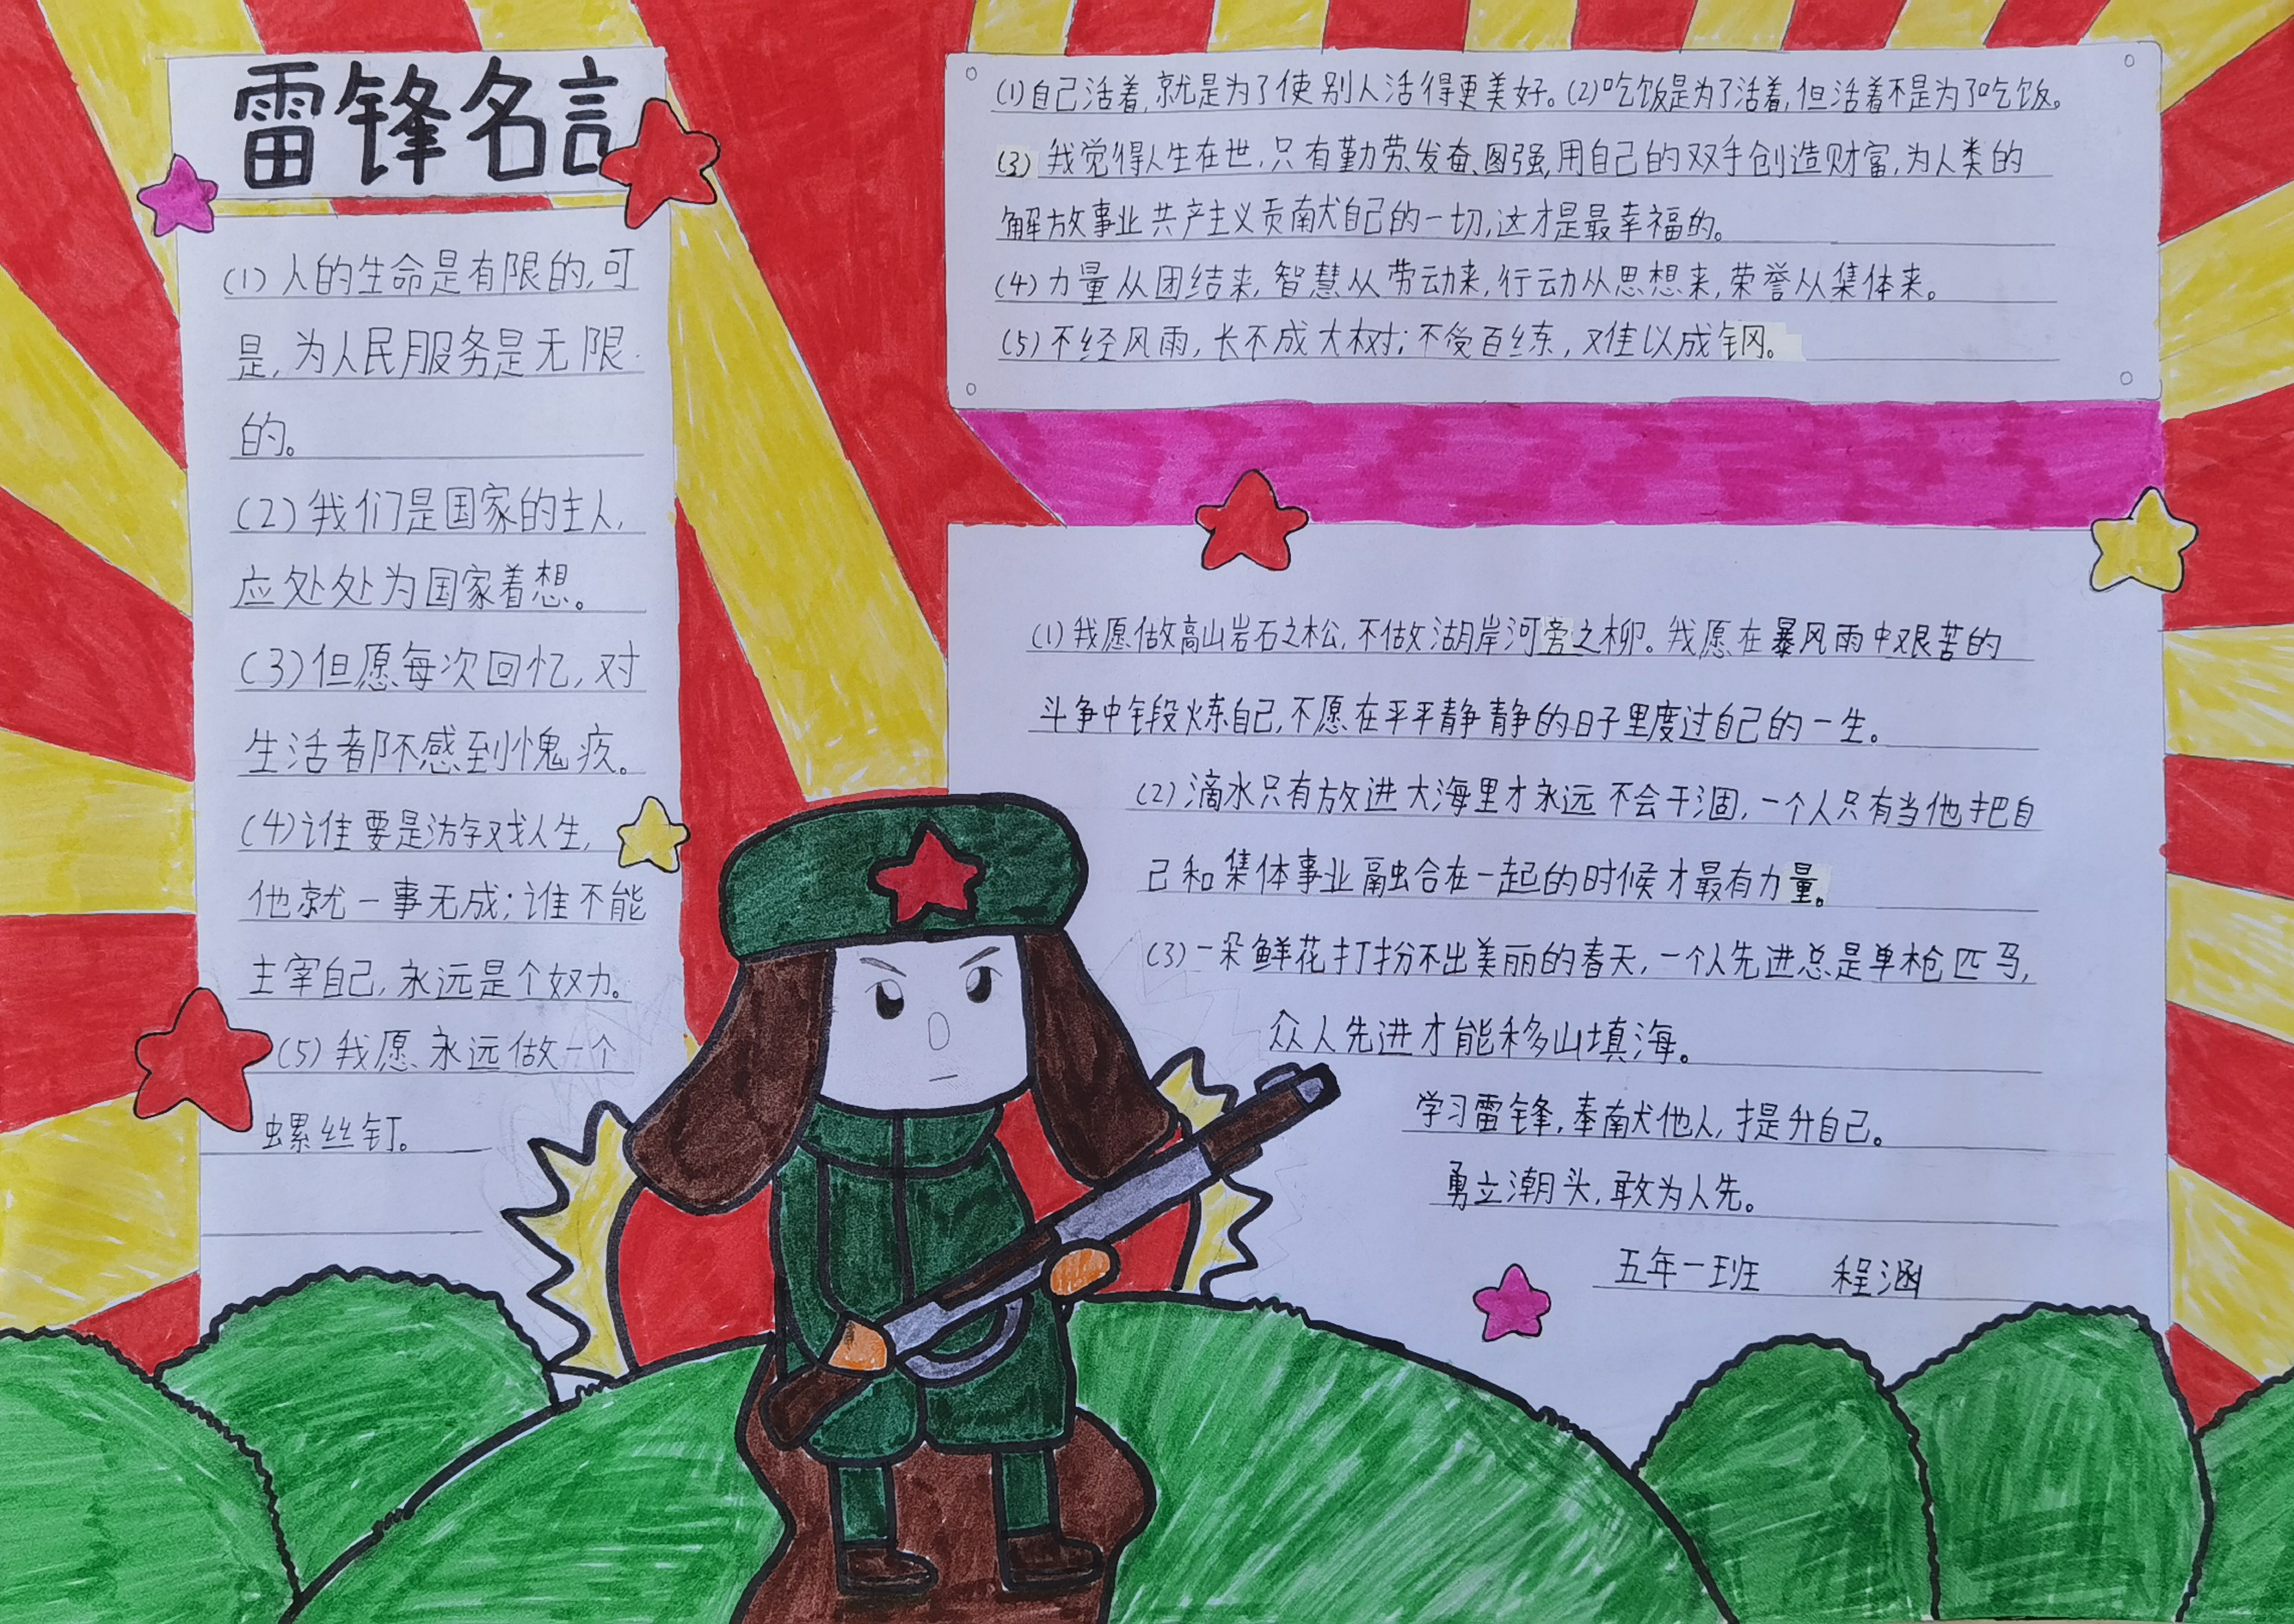 雷锋名言
(1)人的生命是有限的,可
是,为人民服务是无限
的。
(2)我们是国家的主人,
应处处为国家着想。
(3)但愿每次回忆,对
生活都不感到愧疚。
(4)谁要是游戏人生,
他就一事无成;谁不能
主宰自己,永远是个奴力。
(5)我愿永远做一个
螺丝钉。
(1)自己活着,就是为了使别人活得更美好。(2)吃饭是为了活着,但活着不是为了吃饭。
(3)我觉得人生在世,只有勤劳、发奋、图强,用自己的双手创造财富,为人类的
解放事业共产主义贡献自己的一切,这才是最幸福的。
(4)力量从团结来,智慧从劳动来,行动从思想来,荣誉从集体来。
(5)不经风雨,长不成大树;不受百练,难以成钢。
(1)我愿做高山岩石之松,不做湖岸河旁之柳。我愿在暴风雨中艰苦的
斗争中锻炼自己,不愿在平平静静的日子里度过自己的一生。
(2)滴水只有放进大海里才永远不会干涸,一个人只有当他把自
己和集体事业融合在一起的时候才最有力量。
(3)一朵鲜花打扮不出美丽的春天,一个人先进总是单枪匹马,
众人先进才能移山填海。
学习雷锋,奉献他人,提升自己。
勇立潮头,敢为人先。
五年一班 程涵